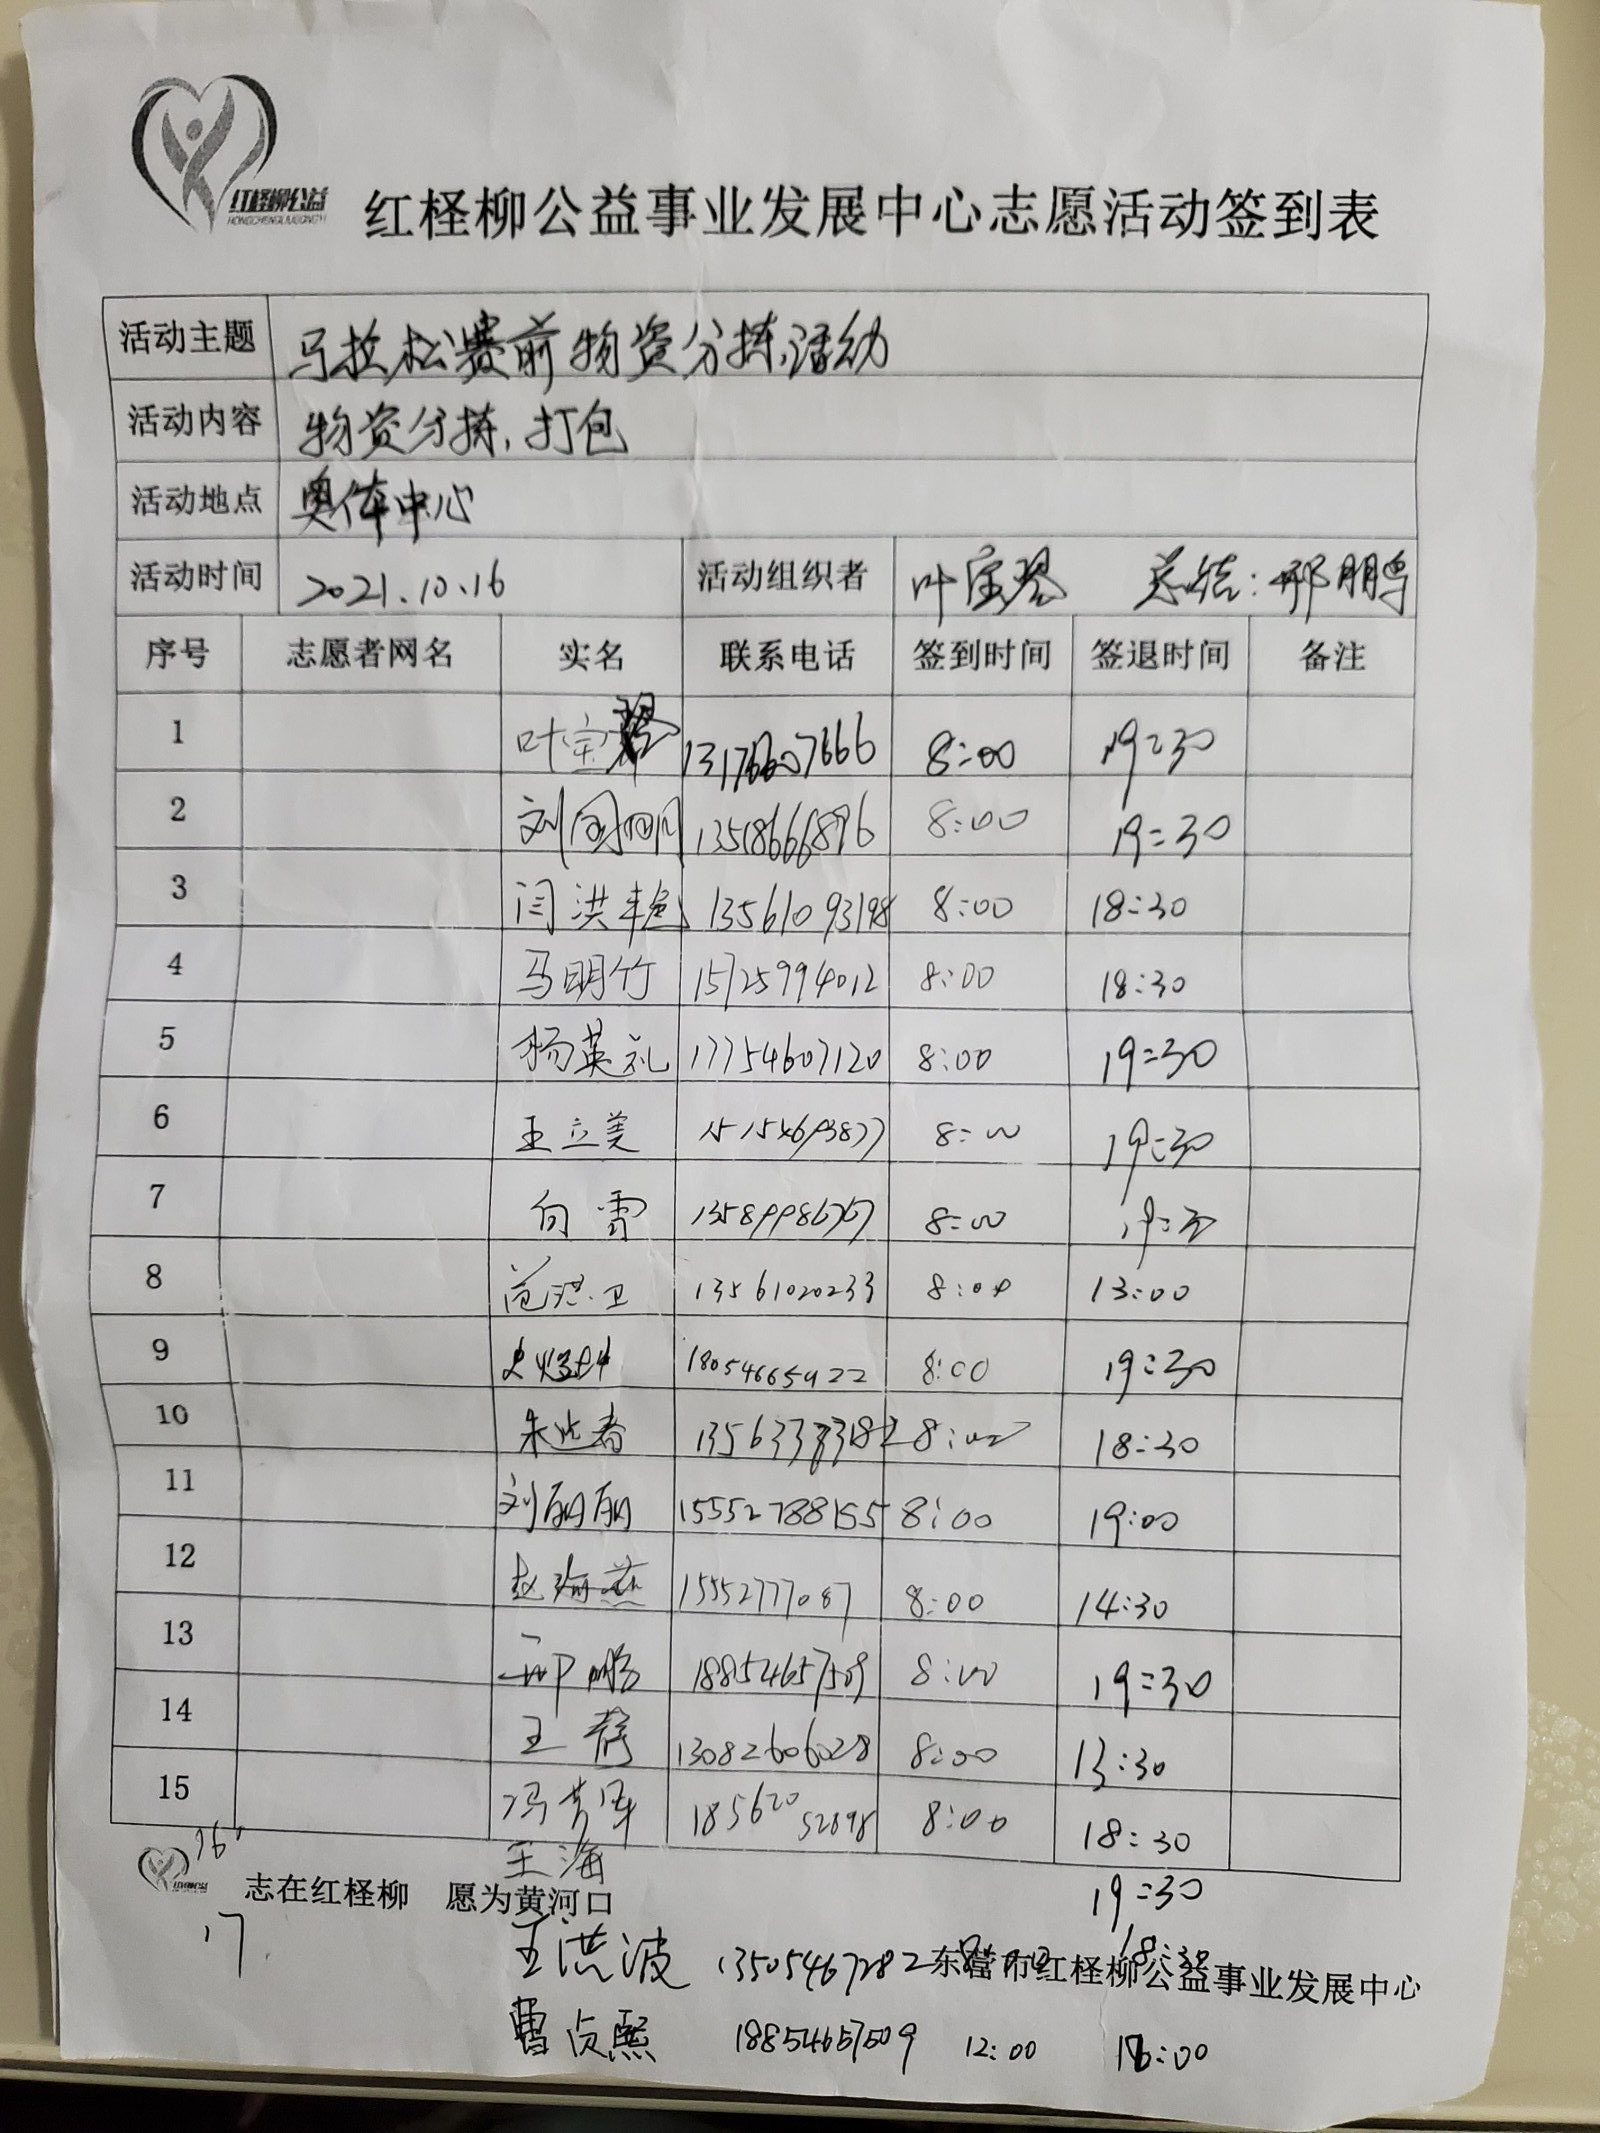 红柽柳公益
HONGCHENGLIUGONGYI
红柽柳公益事业发展中心志愿活动签到表
活动主题 马拉松赛前物资分拣活动
活动内容 物资分拣,打包
活动地点 奥体中心
活动时间 2021.10.16 活动组织者 叶宝琴 总结:邢鹏鹏
序号 志愿者网名 实名 联系电话 签到时间 签退时间 备注
1 叶宝琴 13176607666 8:00 19:30
2 刘国明 13518666896 8:00 19:30
3 闫洪艳 13561093198 8:00 18:30
4 马明竹 15725994012 8:00 18:30
5 杨英礼 17754607120 8:00 19:30
6 王立美 8:00 19:30
7 向雪 8:00 19:30
8 范洪卫 13561020233 8:00 13:00
9 18054665922 8:00 19:30
10 8:00 18:30
11 刘丽丽 15552788155 8:00 19:00
12 赵海燕 15552777087 8:00 14:30
13 邢鹏 18854657509 8:00 19:30
14 王静 13082606028 8:00 13:30
15 冯芳军 18562052898 8:00 18:30
16 王海 19:30
志在红柽柳 愿为黄河口
17 王洪波 13505467282 18:30
东营市红柽柳公益事业发展中心
曹贞熙 18854657509 12:00 18:00